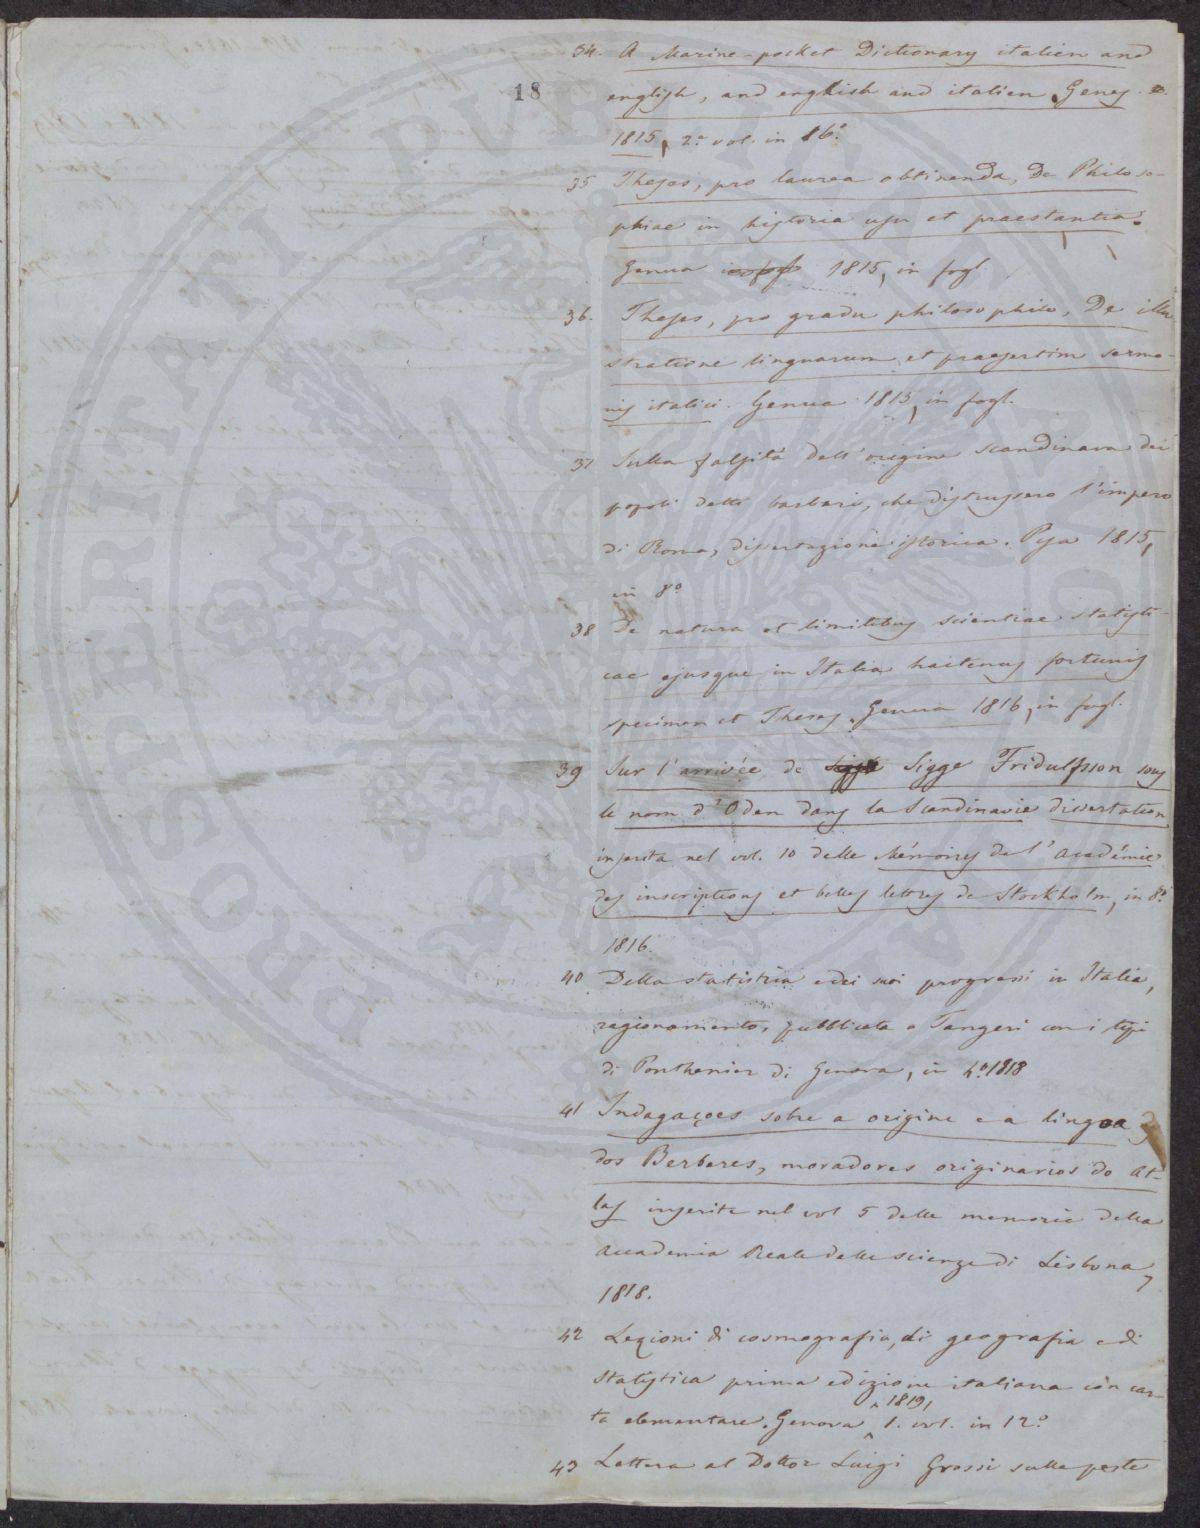 18
34. A Marine-pocket Dictionary italien and
english, and english and italien. Genes.
1815, 2 vol. in 16°.
35 Theses, pro laurea obtinenda, De Philoso-
phiae in historia usu et praestantia.
Genua 1815, in fogl.
36. Theses, pro gradu philosophito, De illu
stratione linguarum, et praesertim sermo-
nis italici. Genua 1815, in fogl.
37 Sulla falsità dell'origine scandinava dei
popoli detti barbari, che distrussero l'impero
di Roma, dissertazione istorica. Pisa 1815,
in 8°
38 De natura et limitibus scientiae statisti-
cae ejusque in Italia haitenus fortunis
specimen et Theses. Genua 1816, in fogl.
39 Sur l'arrivée de Sigge Fridulfsson sous
le nom d'Oden dans la Scandinavie dissertation
inserita nel vol. 10 delle Mémoires de l'Académie
des inscriptions et belles lettres de Stockholm, in 8°
1816.
40 Della statistica e dei suoi progressi in Italia,
ragionamento, pubblicato a Tangeri con i tipi
di Ponthenier di Genova, in 4° 1818
41 Indagaçoes sobre a origine e a lingoa
dos Berberes, moradores originarios do At-
las inserite nel vol 5 delle memorie della
Accademia Reale delle scienze di Lisbona,
1818.
42 Lezioni di cosmografia, di geografia e di
statistica prima edizione italiana con car-
ta elementare. Genova 1819, 1. vol. in 12°
43 Lettera al Dottor Luigi Grossi sulla peste
PROSPERITATI PVBLICAE AVGENDAE